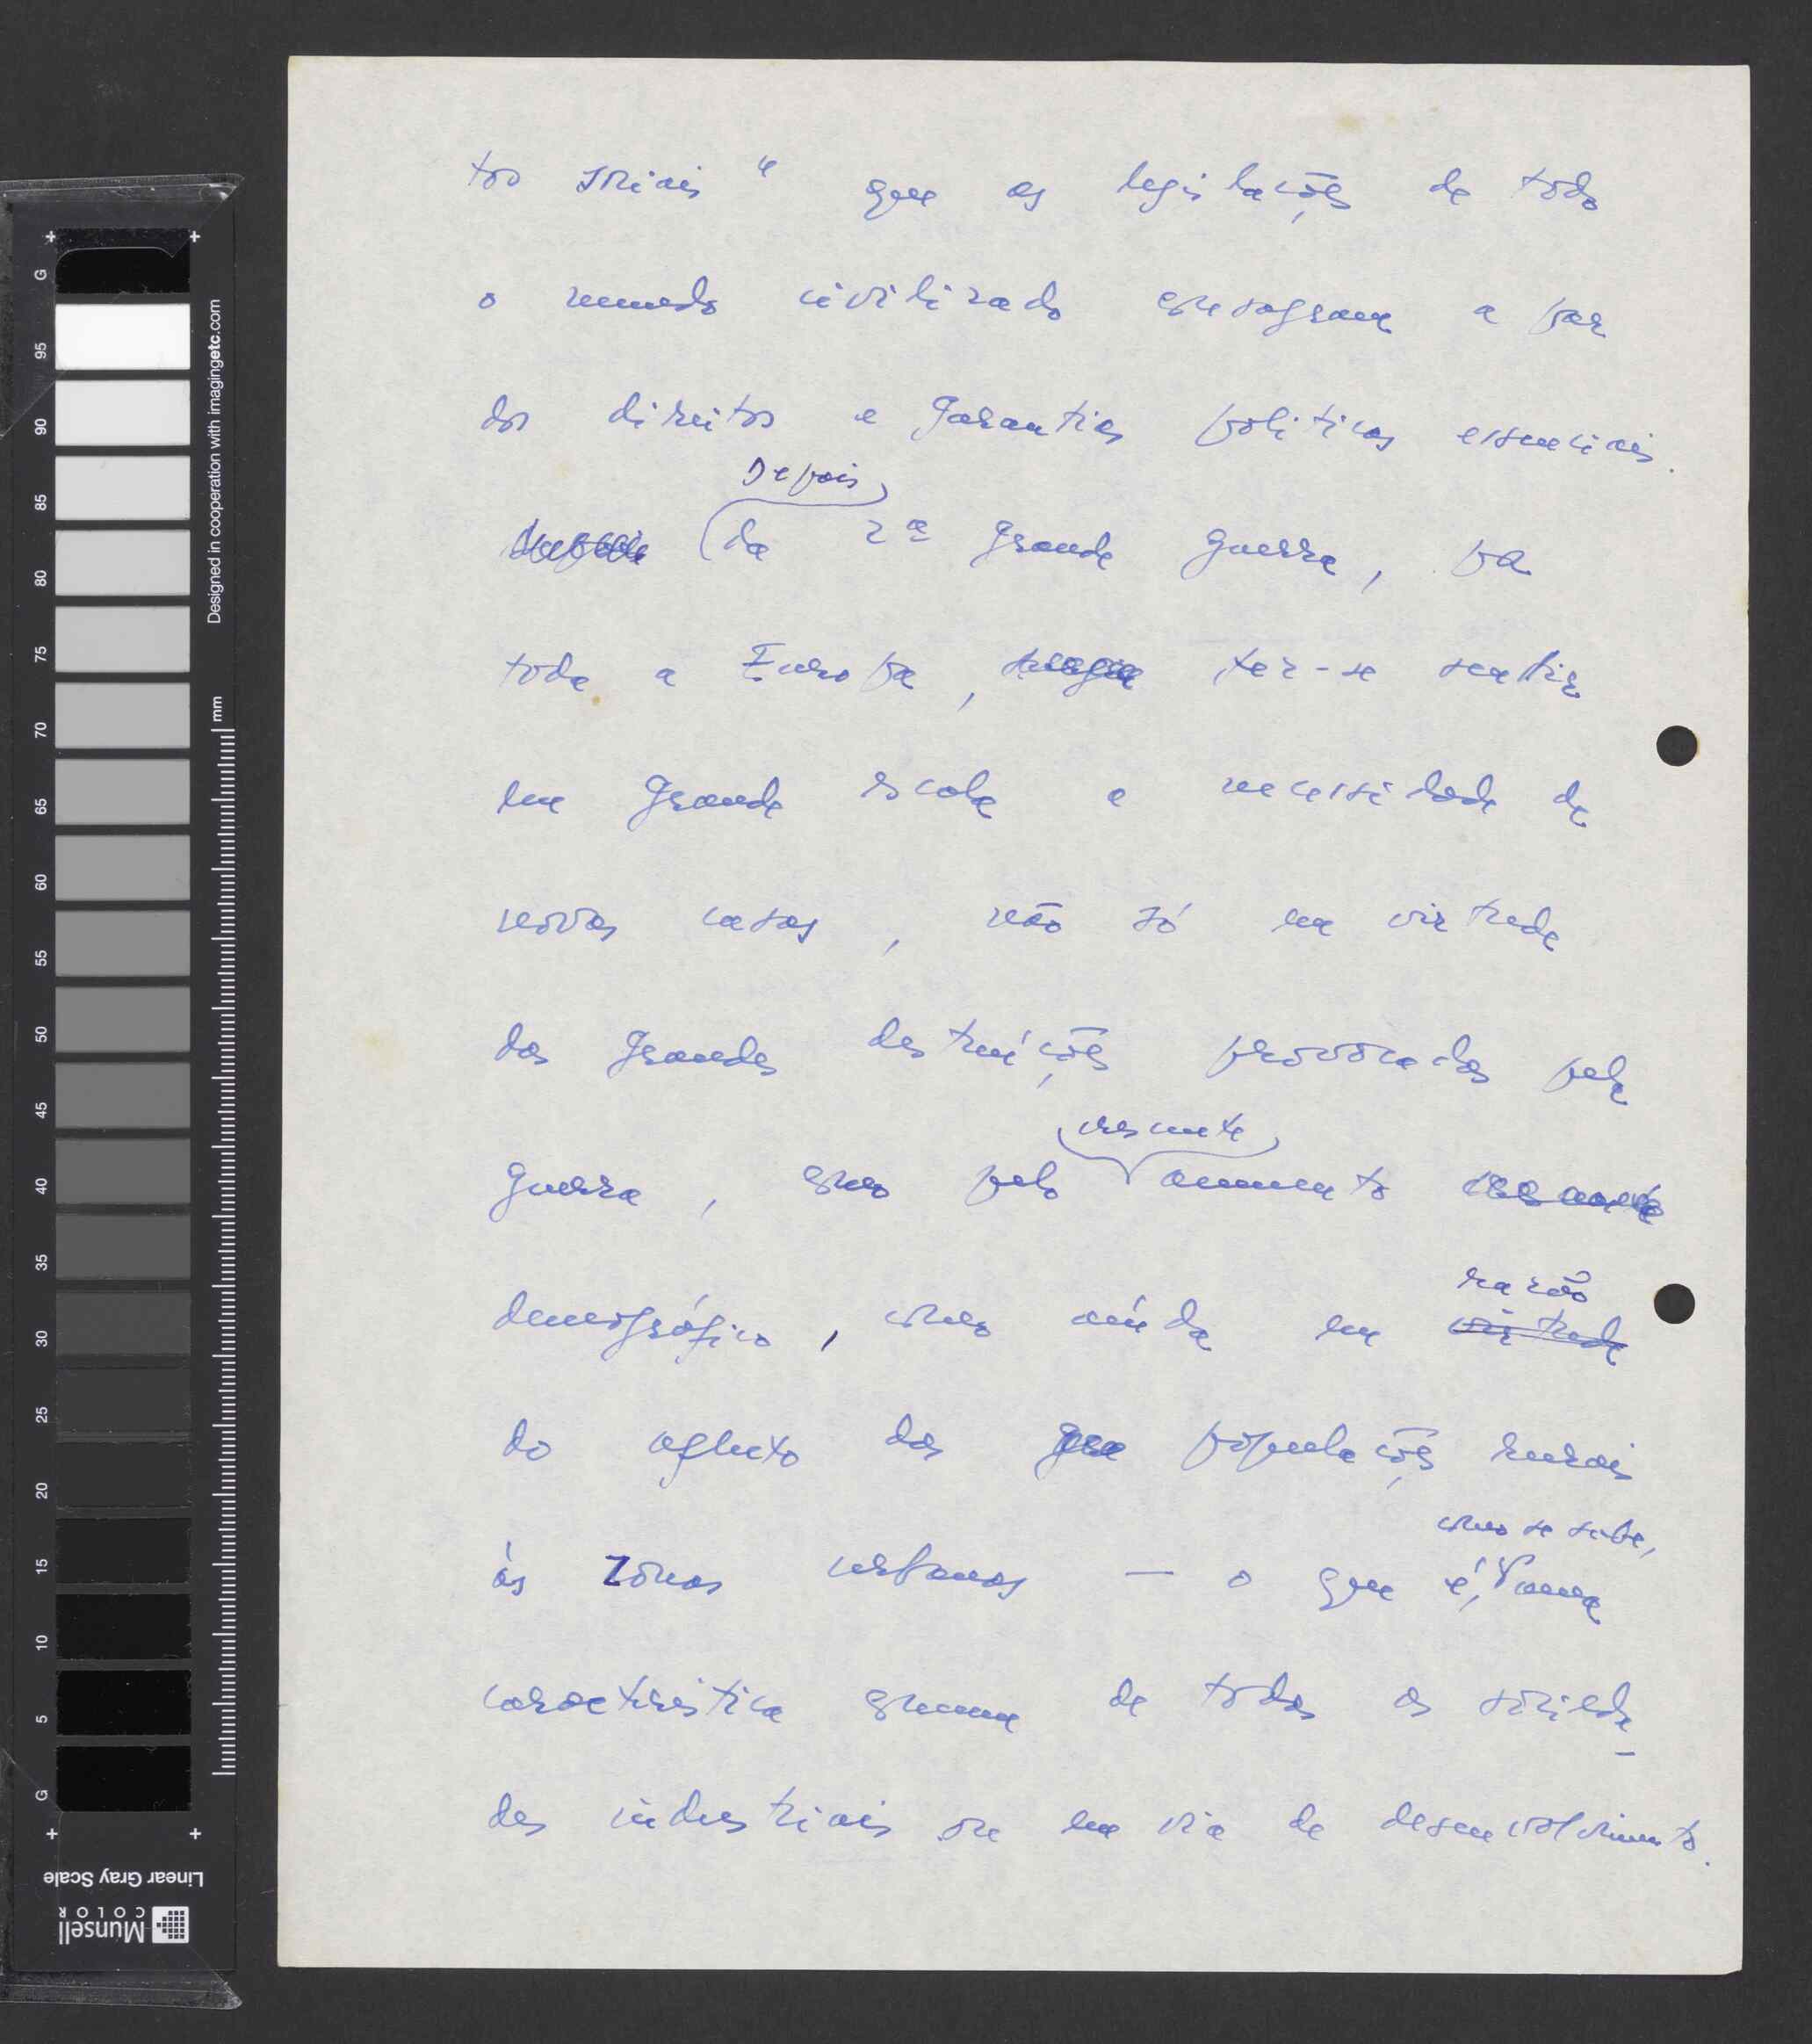 tos sociais" que as legislações de todo
o mundo civilizado consagram a par
dos direitos e garantias políticas essenciais.
Depois
da 2ª grande guerra, por
toda a Europa, fez-se sentir
em grande escala a necessidade de
novas casas, não só em virtude
das grandes destruições provocadas pela
crescente
guerra, como pelo aumento crescente
demográfico, como ainda em virtude
razão
do afluxo das populações rurais
como se sabe,
às zonas urbanas — o que é, uma
característica comum de todas as socieda-
des industriais ou em via de desenvolvimento.
G 95 90 85 80 75 70 65 60 55 50 45 40 35 30 25 20 15 10 5 G
mm
Designed in cooperation with imagingetc.com
Linear Gray Scale
Munsell
COLOR